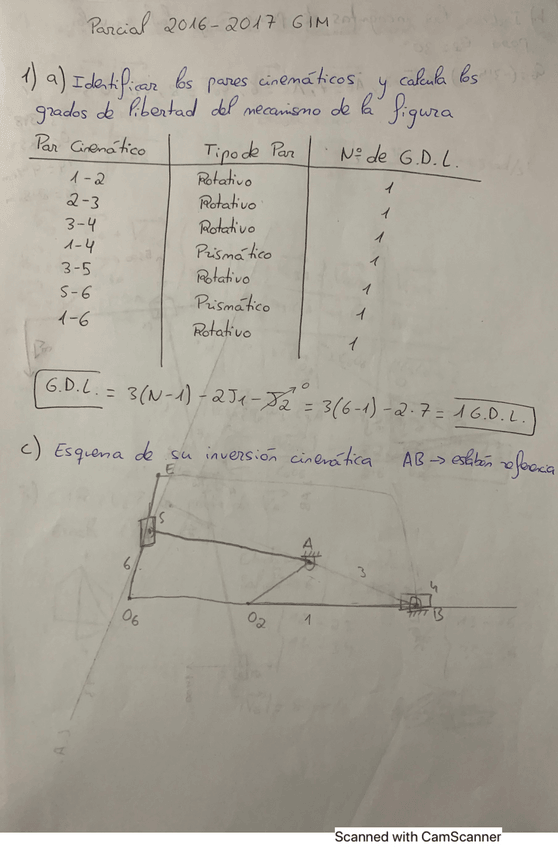 Parcial 2016-2017 GIM
1) a) Identificar los pares cinemáticos y calcula los
grados de libertad del mecanismo de la figura
Par Cinemático Tipo de Par Nº de G.D.L.
1-2 Rotativo 1
2-3 Rotativo 1
3-4 Rotativo 1
1-4 Prismático 1
3-5 Rotativo 1
5-6 Prismático 1
1-6 Rotativo 1
G.D.L. = 3(N-1) - 2J1 - J2 0 = 3(6-1) - 2·7 = 1 G.D.L.
c) Esquema de su inversión cinemática AB → eslabón referencia
E
5
A
6
3
4
O6
O2
1
B
Scanned with CamScanner